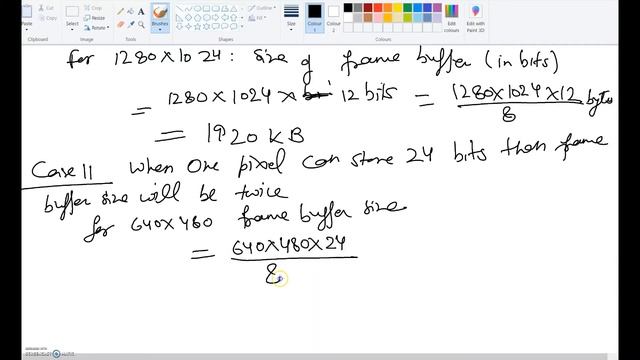 Paste
Select
Crop
Resize
Rotate
Brushes
Size
Colour 1
Colour 2
Edit colors
Edit with Paint 3D
Image
Tools
Shapes
Colours
for 1280×1024: size of frame buffer (in bits)
= 1280×1024 × 12 bits = 1280×1024×12 / 8 bytes
= 1920 KB
Case II when One pixel can store 24 bits then frame
buffer size will be twice
for 640×480 frame buffer size
= 640×480×24
8